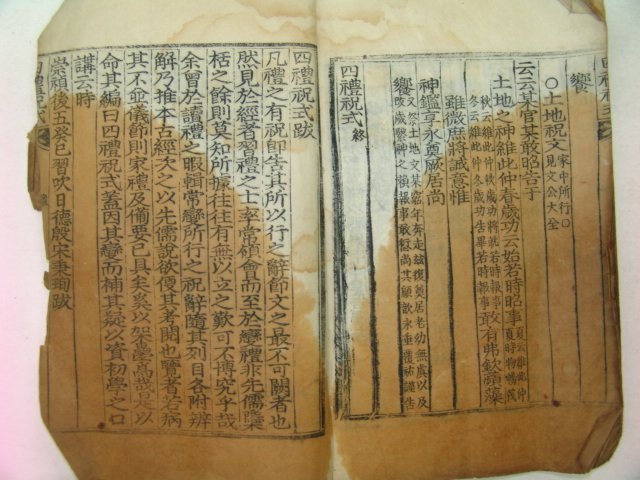 饗
○土地祝文家中所行□見文公大全
云云某官某敢昭告于
土地之神維此仲春歲功云始若時昭事夏云維此仲夏時物暢茂秋云維此仲秋歲功將就若時報事冬云維此仲冬歲功告畢若時報事敢有弗欽蘋藻
雖微庶將誠意惟
神鑑享永奠厥居尚
饗
四禮祝式終
四禮祝式跋
凡禮之有祝師告其所以行之辭節文之最不可闕者也
然見於經者習禮之士率常領會而至於變禮非先儒
枯之餘則莫知所據往往有無以立之歎可不博究乎哉
余曾於讀禮之暇輯常變所行之祝辭隨其列目各附辨
解乃推本古經次之以先儒說欲便其考閱也覽者若病
其不並儀節則家禮及備要已具矣奚以架疊爲哉是以
命其編曰四禮祝式蓋因其變而補其疑以資初學之口
講云時
崇禎後五癸巳習吹日德殷宋秉珣跋